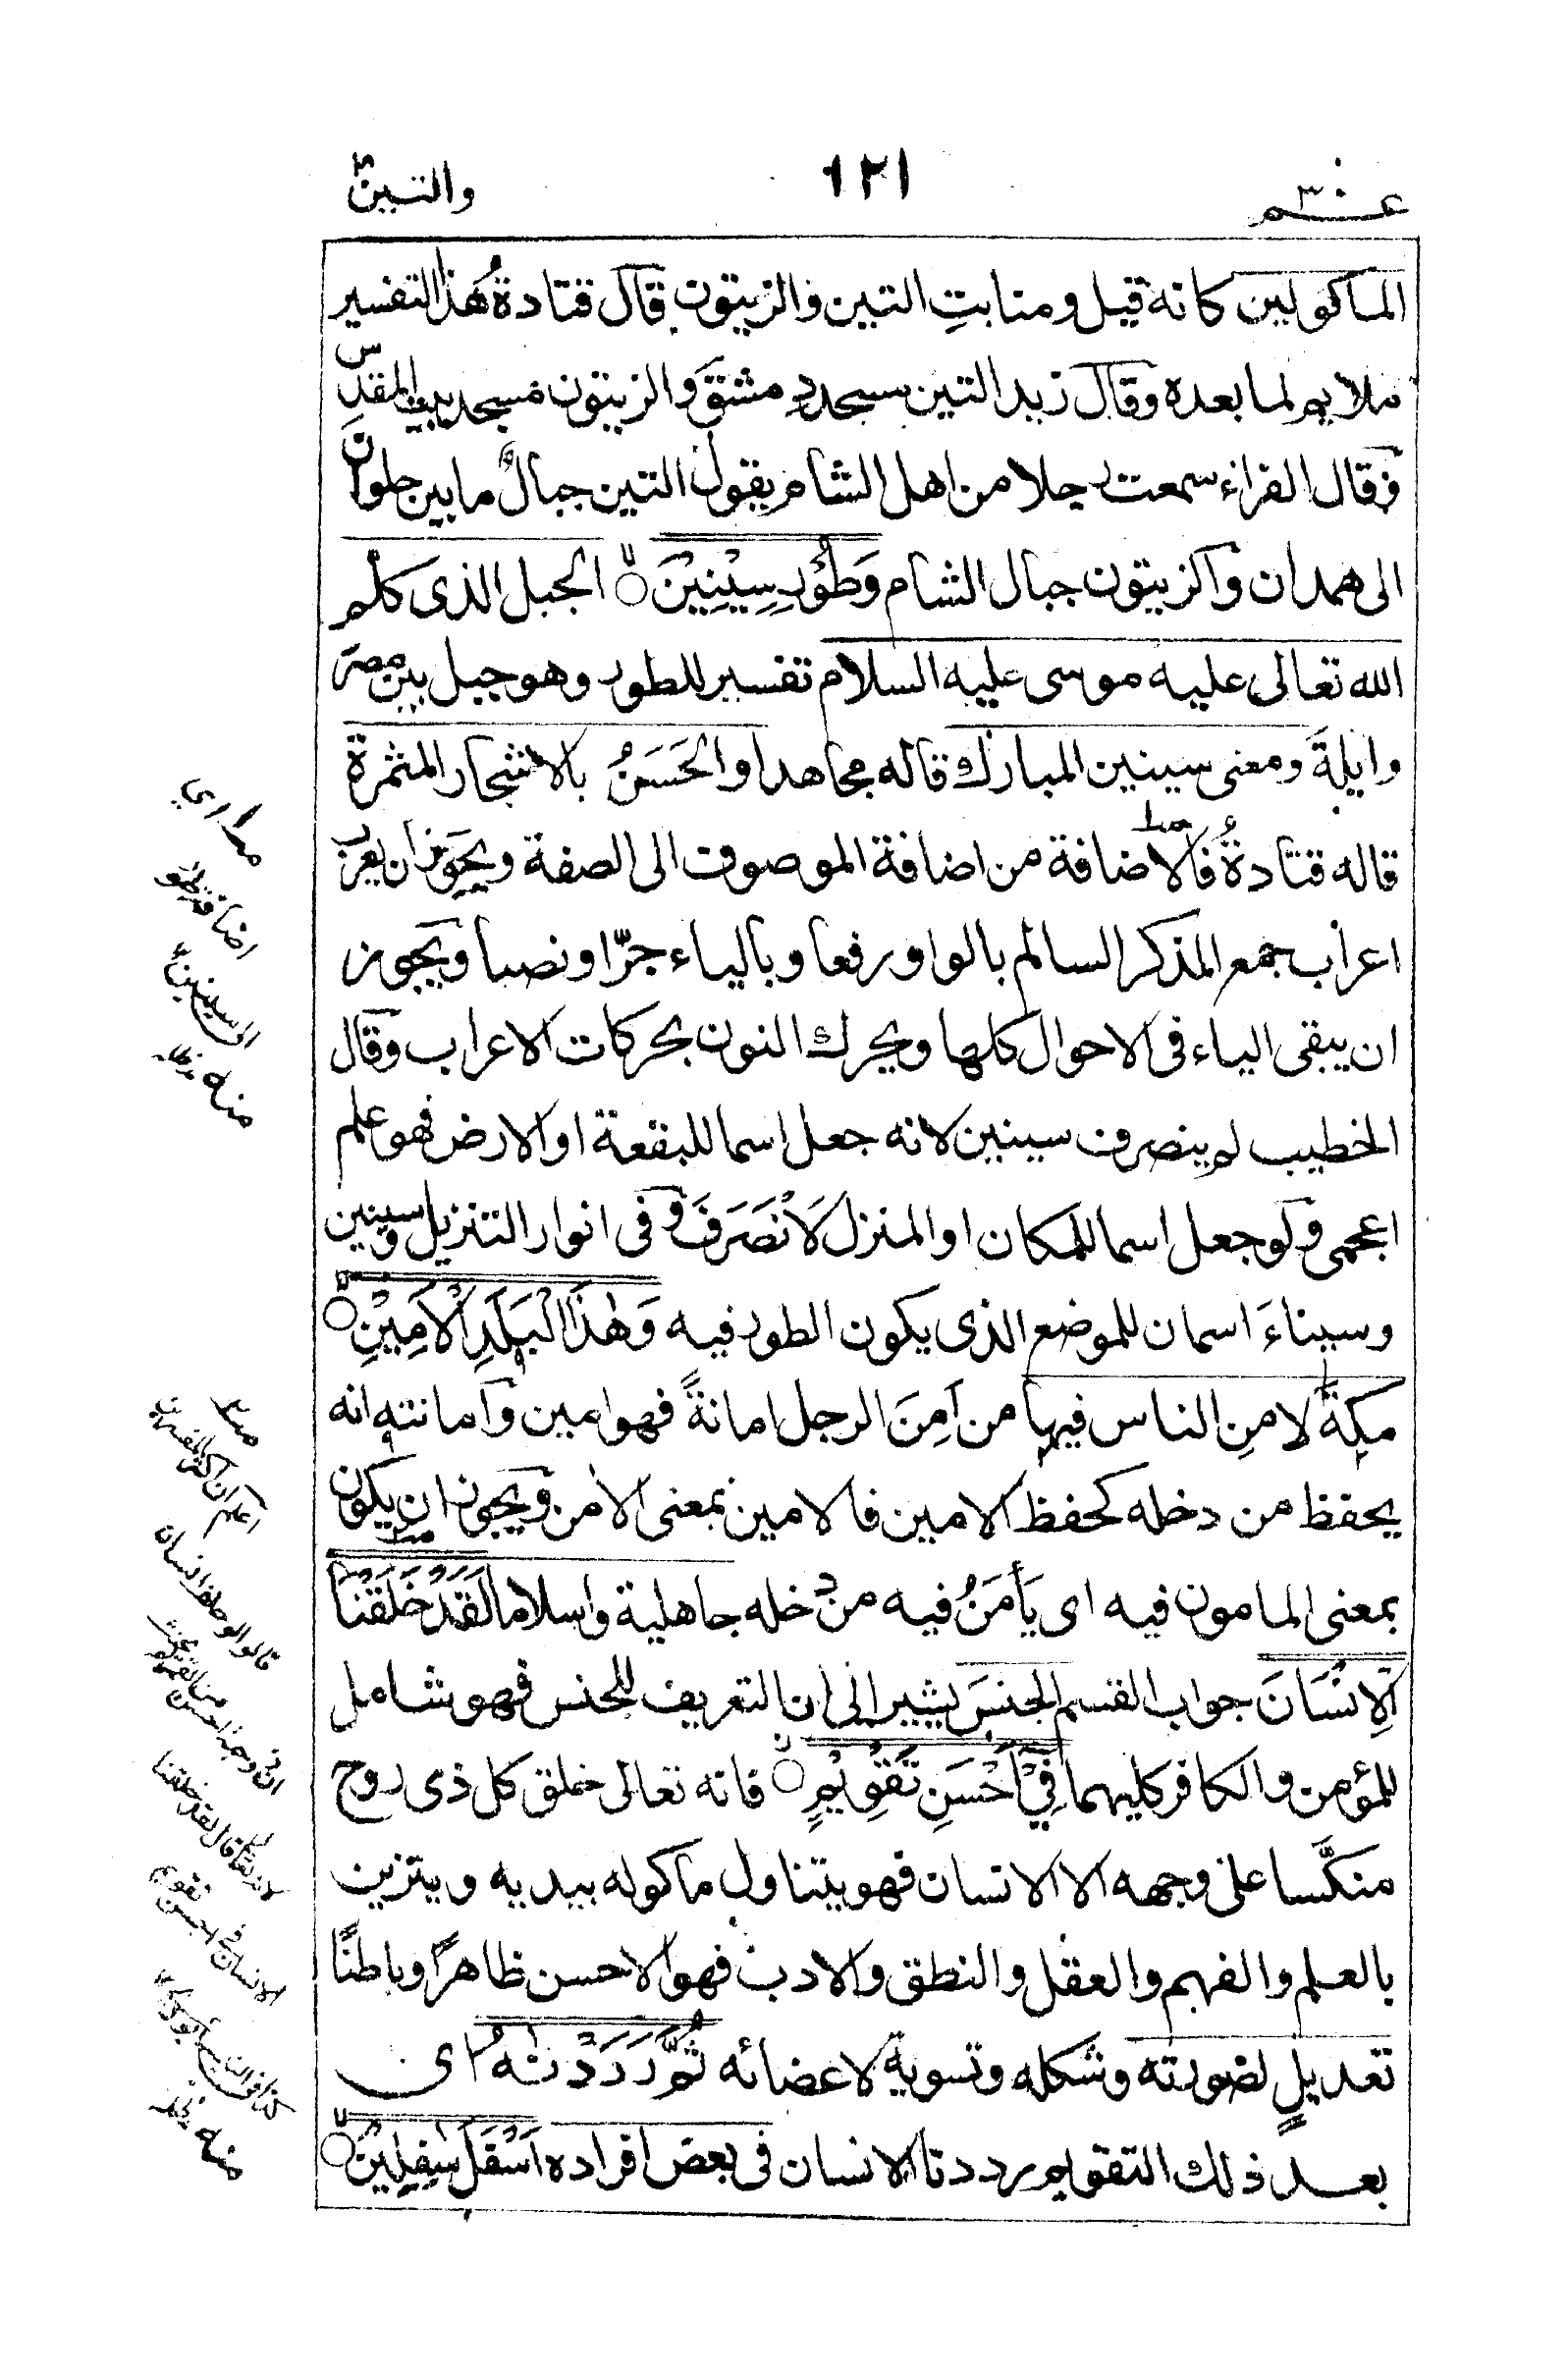 عـ٣٠ـم
١٢١
والتين
الماكولين كانه قيل ومنابتِ التين والزيتون قال قتادةُ هذا التفسير
ملايم لما بعده وقال زيد التين مسجد دمشق والزيتون مسجد بيت المقدس
وقال الفراء سمعت رجلا من اهل الشام يقول التين جبالٌ ما بين حلوان
الى همدان والزيتون جبال الشام وَطُوْرِ سِيْنِيْنَ الجبل الذى كلم
الله تعالى عليه موسى عليه السلام تفسير للطور وهو جبل بين مصر
وايلةَ ومعنى سينين المبارك قاله مجاهد او الحَسَنُ بالاشجار المثمرة
قاله قتادةُ فالاضافة من اضافة الموصوف الى الصفة ويجوز ان يعرب
اعراب جمع المذكر السالم بالواو رفعا وبالياء جرّا ونصبا ويجوز
ان يبقى الياء فى الاحوال كلها ويحرك النون بحركات الاعراب وقال
الخطيب لم ينصرف سينين لانه جعل اسما للبقعة او الارض فهو علم
اعجمى ولو جعل اسما للمكان او المنزل لَانْصَرَفَ وفى انوار التنزيل وسينين
وسيناءَ اسمان للموضع الذى يكون الطور فيه وَهٰذَا الْبَلَدِ الْاَمِيْنِ
مكةَ لامنِ الناس فيها من اَمِنَ الرجل امانةً فهو امين وامانته انه
يحفظ من دخله كحفظ الامين فالامين بمعنى الامن ويجوز ان يكون
بمعنى المامون فيه اى يَأمَنُ فيه من دخله جاهلية واسلاما لَقَدْ خَلَقْنَا
الْاِنْسَانَ جواب القسم الجنسَ يشير الى ان التعريف للجنس فهو شامل
للمؤمن والكافر كليهما فِيْٓ اَحْسَنِ تَقْوِيْمٍ فانه تعالى خلق كل ذى روح
منكَّسا على وجهه الا الانسان فهو يتناول ماكوله بيديه ويتزين
بالعلم والفهم والعقل والنطق والادب فهو الاحسن ظاهرًا وباطنًا
تعديلٍ لصورته وشكله وتسوية لاعضائه ثُمَّ رَدَدْنٰهُ اى
بعد ذلك التقويم رددنا الانسان فى بعض افراده اَسْفَلَ سٰفِلِيْنَ
اى
اضافة طور
الى سينين
منه
اعلم ان اكثر المفسرين
قالوا
لقد خلقنا
الانسان فى احسن تقويم
منه